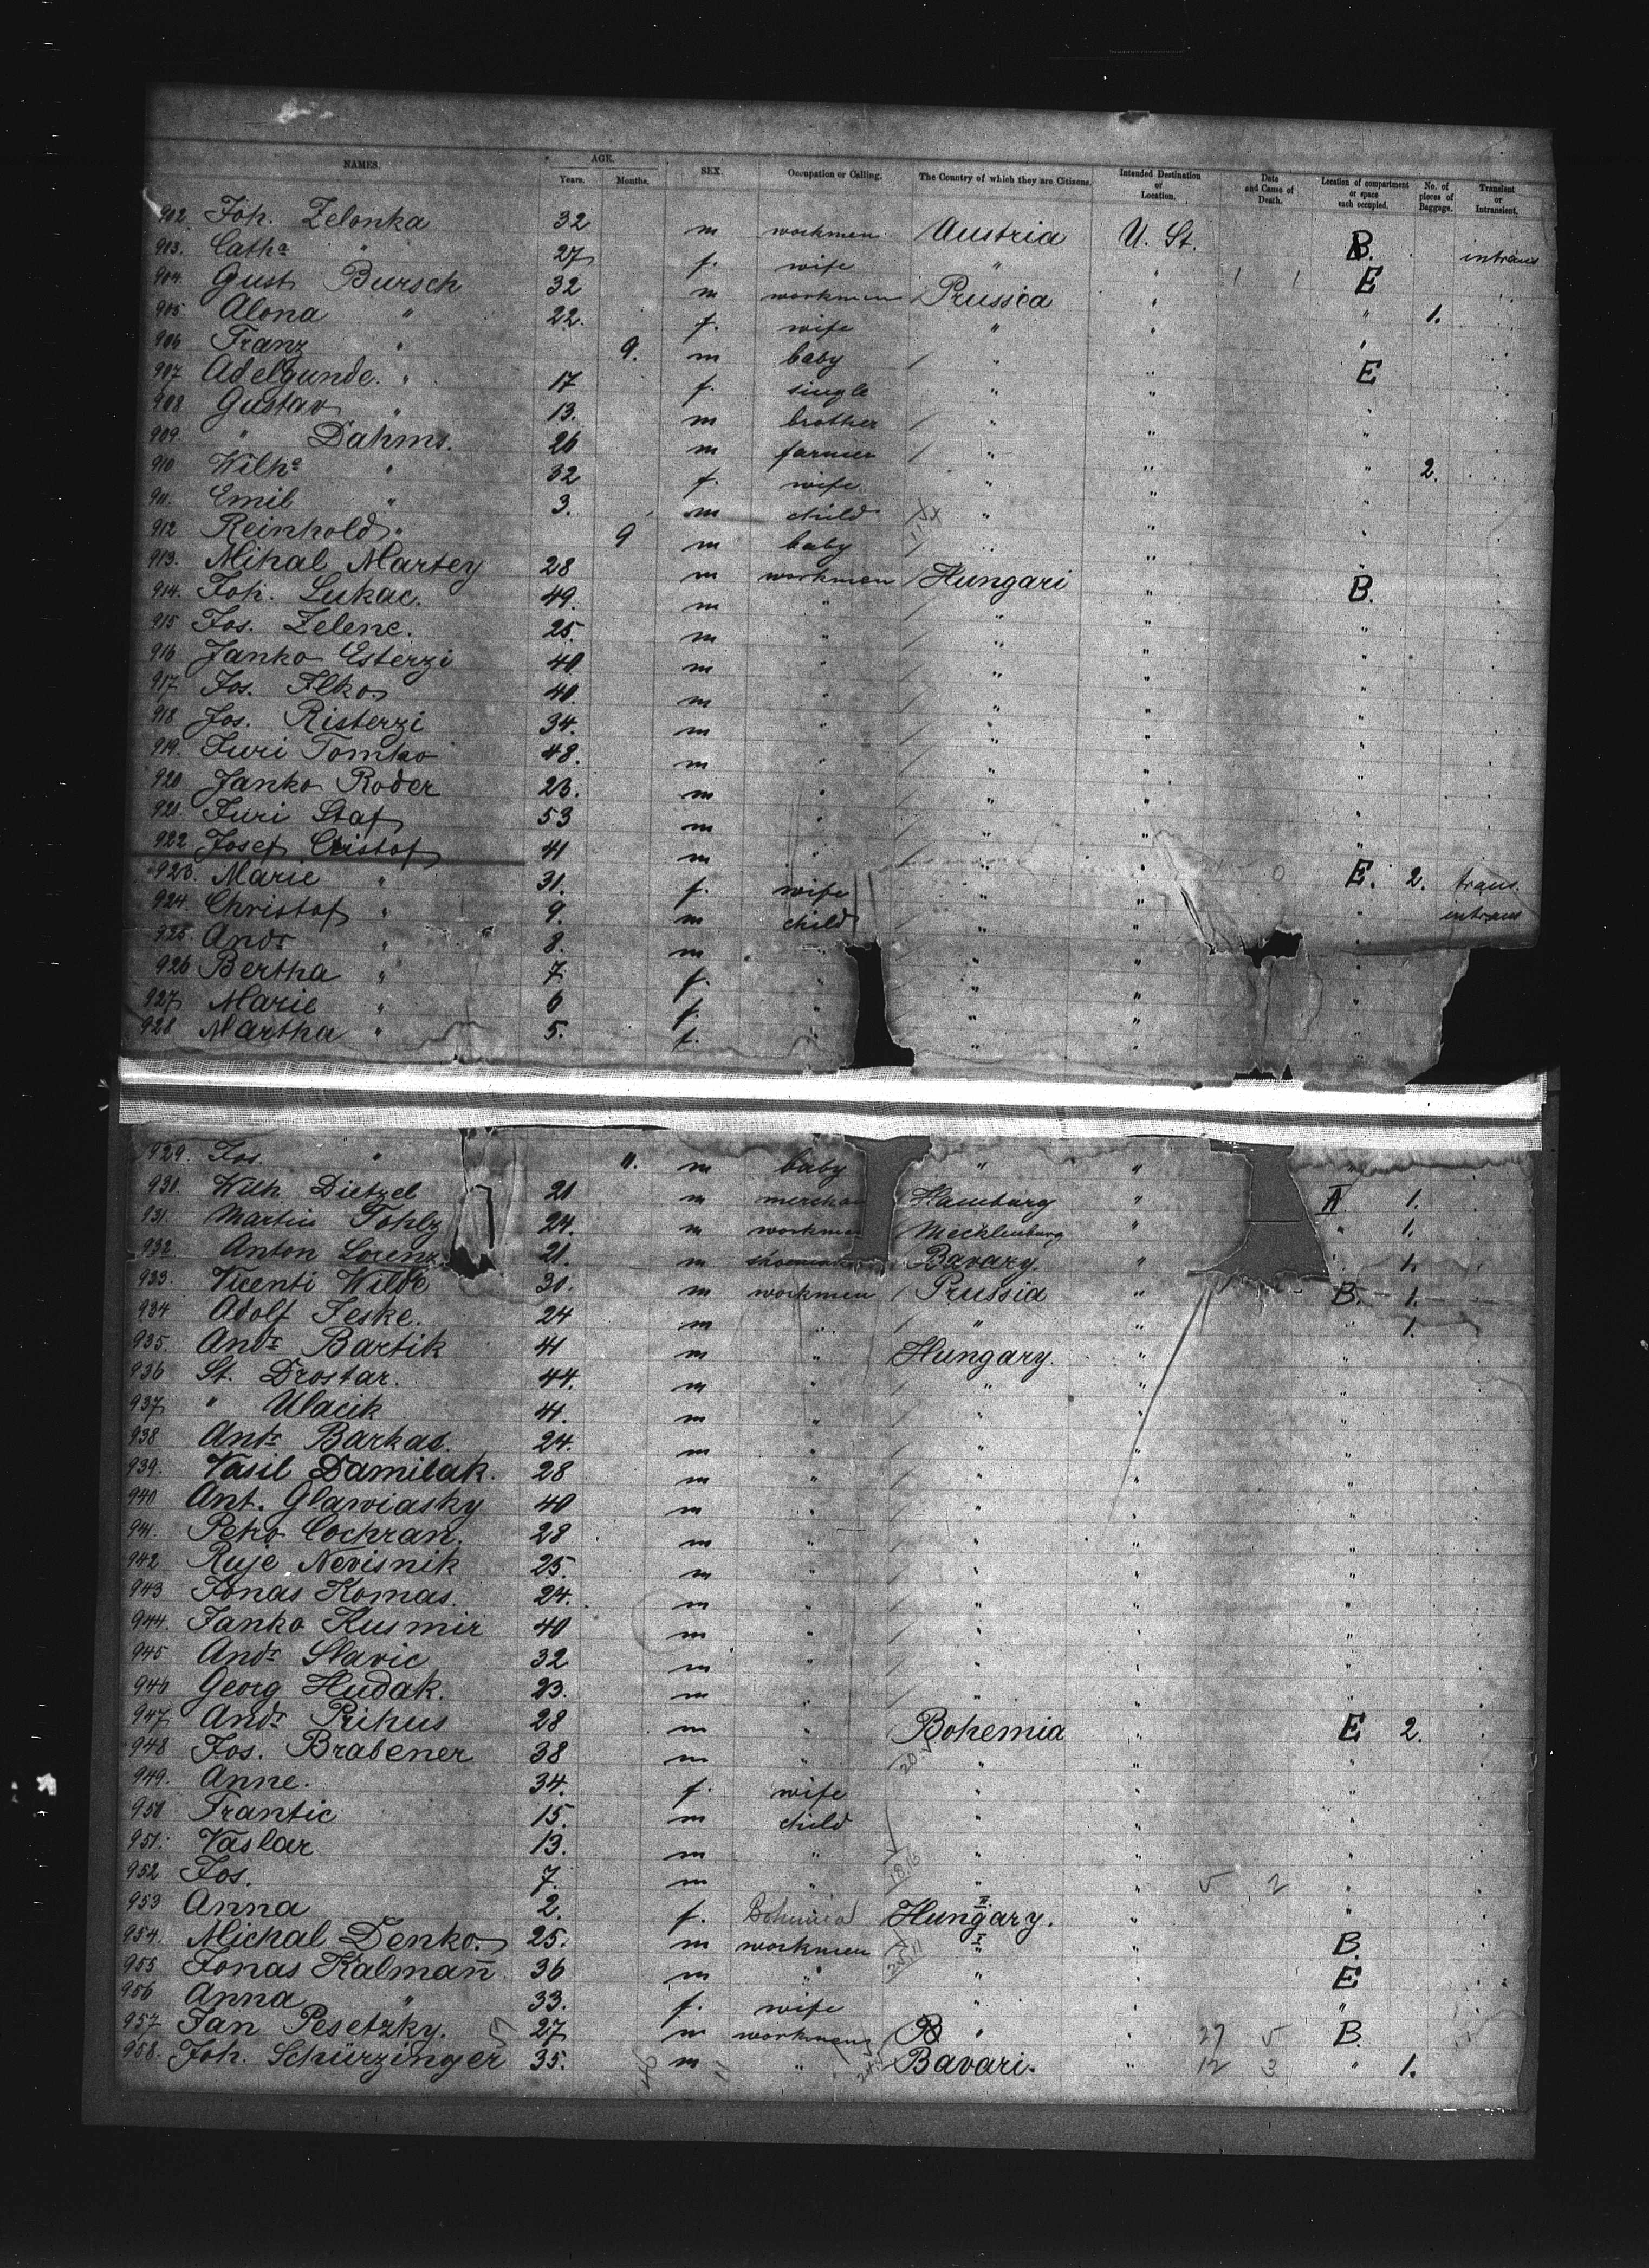 NAMES. AGE. Years. Months. SEX. Occupation or Calling. The Country of which they are Citizens. Intended Destination or Location. Date and Cause of Death. Location of compartment or space each occupied. No. of pieces of Baggage. Transient or Intransient.
902. Joh. Zelonka 32 m workmen Austria U. St. B. intrans
903. Cathe " 27 f. wife " "
904. Gust. Bursch 32 m workmen Prussia " E
905. Alona " 22. f. wife " " " 1.
906 Franz " 9. m baby " " "
907 Adelgunde. " 17 f. single " " E
908 Gustav " 13. m brother " " "
909. " Dahms. 26 m farmer " " " 2.
910 Wilhe " 32 f. wife " " "
911. Emil " 3. m child " " "
912 Reinhold " 9 m baby " " "
913. Mihal Martey 28 m workmen Hungari " B.
914. Joh. Lukac. 49. m " " " "
915 Jos. Zelenc. 25. m " " " "
916 Janko Esterzi 40 m " " " "
917. Jos. Ilko 40. m " " " "
918 Jos. Risterzi 34. m " " " "
919. Juri Tomko 48. m " " " "
920 Janko Roder 23. m " " " "
921. Juri Staf 53 m " " " "
922 Josef Cristof 41 m " " " E. 2. trans.
923. Marie " 31. f. wife " " " intrans
924. Christof " 9. m child " " "
925. Andr " 8. m " " " "
926 Bertha " 7. f. " " " "
927 Marie " 6 f. " " " "
928 Martha " 5. f. " " " "
929. Jos. " 11. m baby " " "
931. Wilh. Dietzel 21 m merchan Hamburg " A 1.
931. Martin Tohlz 24. m workmen Mecklenburg " " 1.
932 Anton Lorenz 21. m Bavary. " " 1.
933. Vicenti Wilde 30. m workmen Prussia " B. 1.
934 Adolf Jeske. 24 m " " " " 1.
935. Andr Bartik 41 m " Hungary. " "
936 St. Drostar. 44. m " " " "
937 " Ulacik 41. m " " " "
938 Andr Barkas. 24. m " " " "
939. Vasil Damilak. 28 m " " " "
940 Ant. Glawiasky 40 m " " " "
941. Peko Cochran. 28 m " " " "
942 Ruje Nevisnik 25. m " " " "
943 Jonas Komas. 24. m " " " "
944. Janko Kusmir 40 m " " " "
945 Andr Slavic 32 m " " " "
946 Georg Hudak. 23. m " " " "
947 Andr Prihus 28 m " Bohemia " E 2.
948 Jos. Brabener 38 m " " " "
949. Anne. 34. f. wife " " "
950 Frantic 15. m child " " "
951. Vaslar 13. m " " " "
952 Jos. 7. m " " " 5 2 "
953 Anna 2. f. Bohemia Hungary. II " "
954. Michal Denko. 25. m workmen " I " B.
955 Jonas Kalmañ 36 m " " " E
956 Anna " 33. f. wife " " "
957 Jan Pesetzky. 27 m workmen " " 27 5 B.
958. Joh. Schürzinger 35. m " Bavari. " 12 3 " 1.